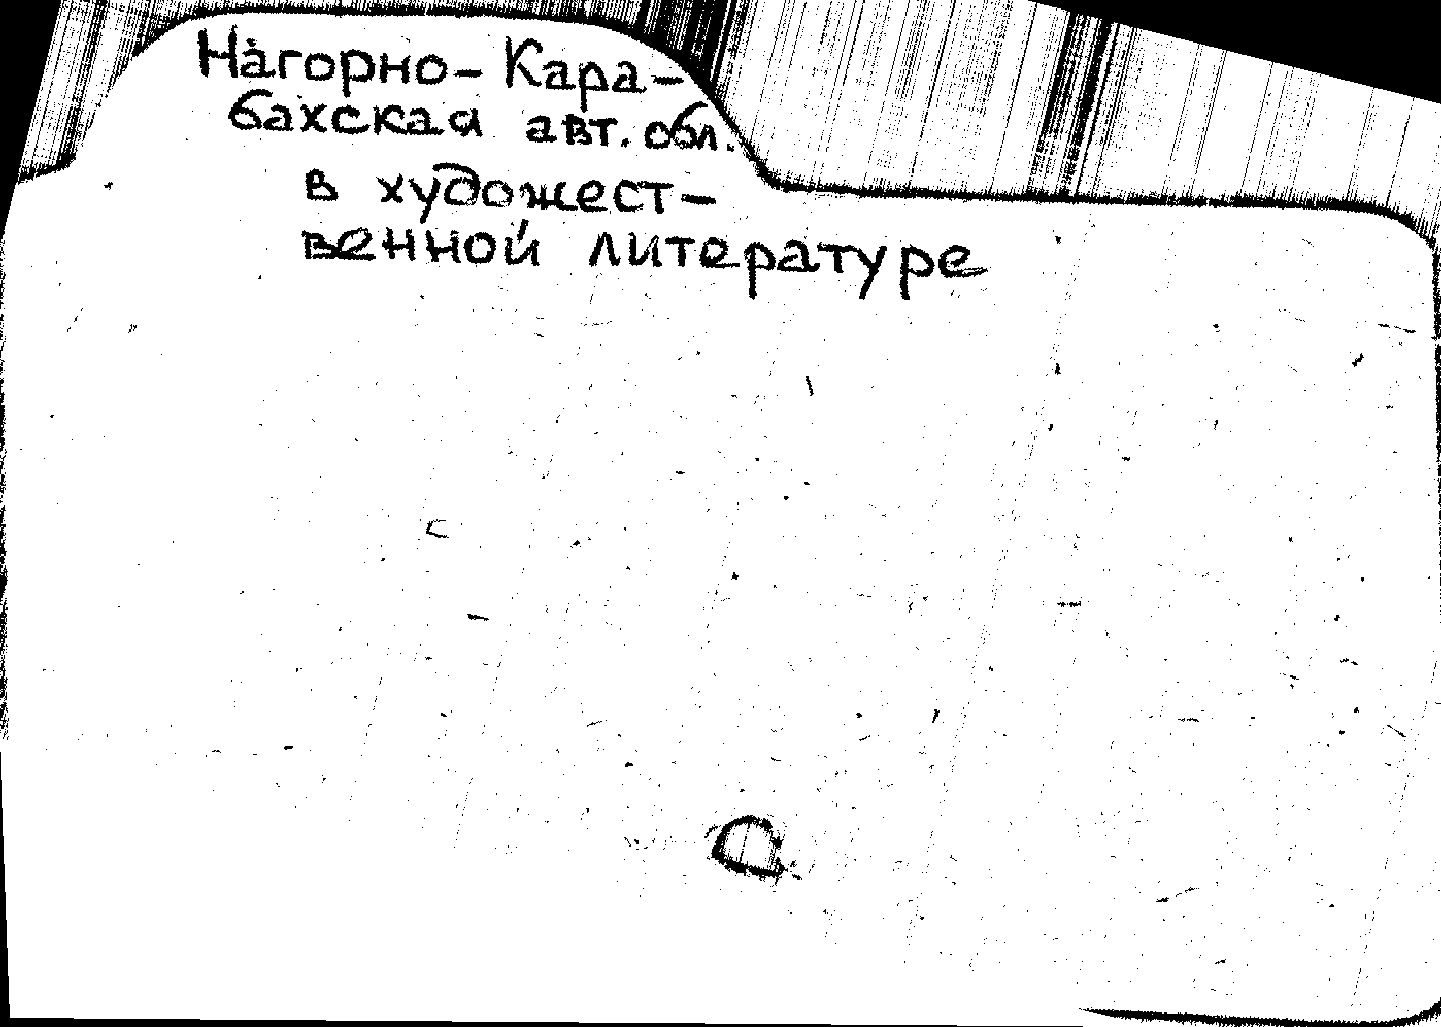 Нагорно-Кара-
бахская авт. обл.
в художест-
венной литературе